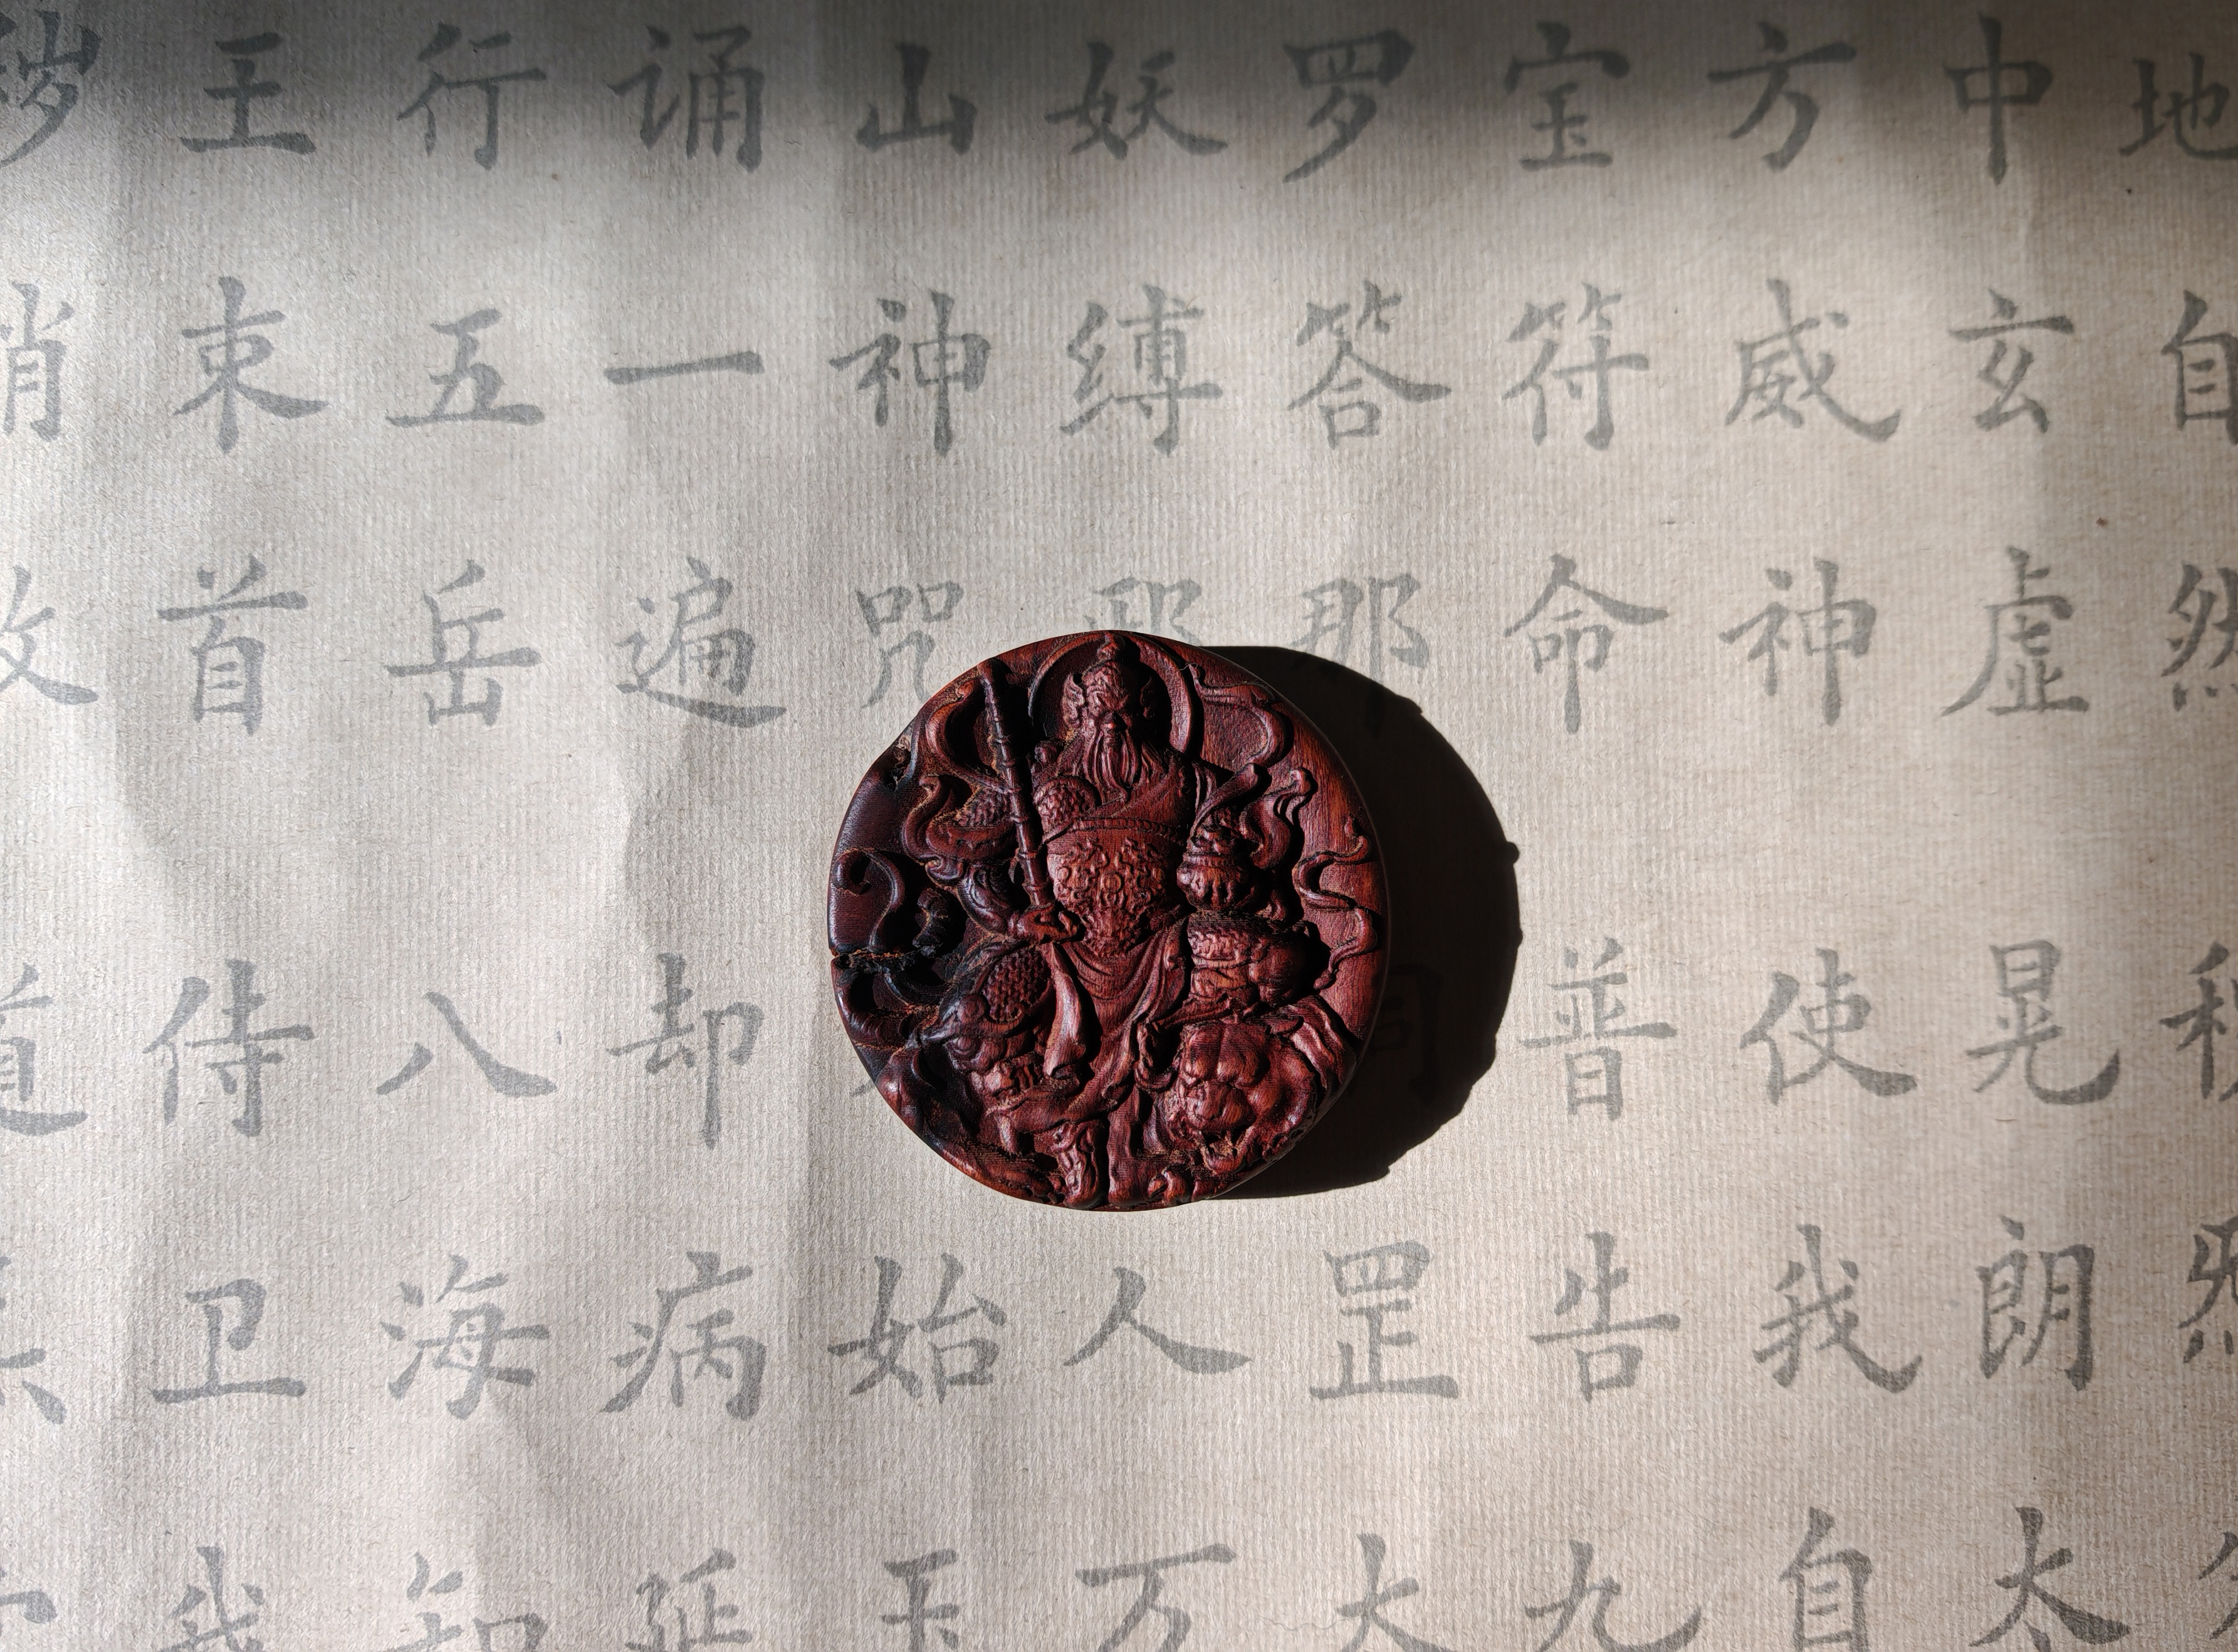 地自然秽炁
中玄虚晃朗太
方威神使我自
宝符命普告九
罗答那罡大
妖缚邪人万
山神咒始玉
诵一遍却病延
行五岳八海知
王束首侍卫我
秽消散道炁